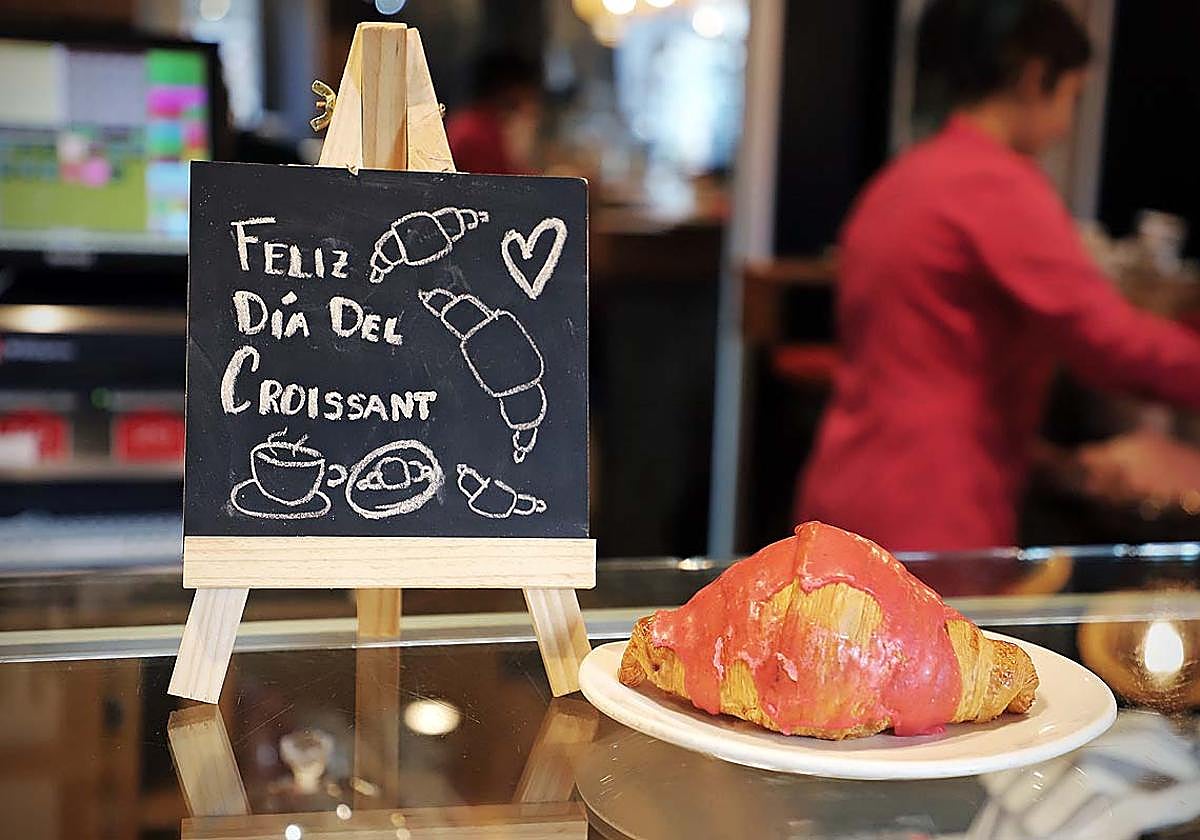 FELIZ
DÍA DEL
CROISSANT